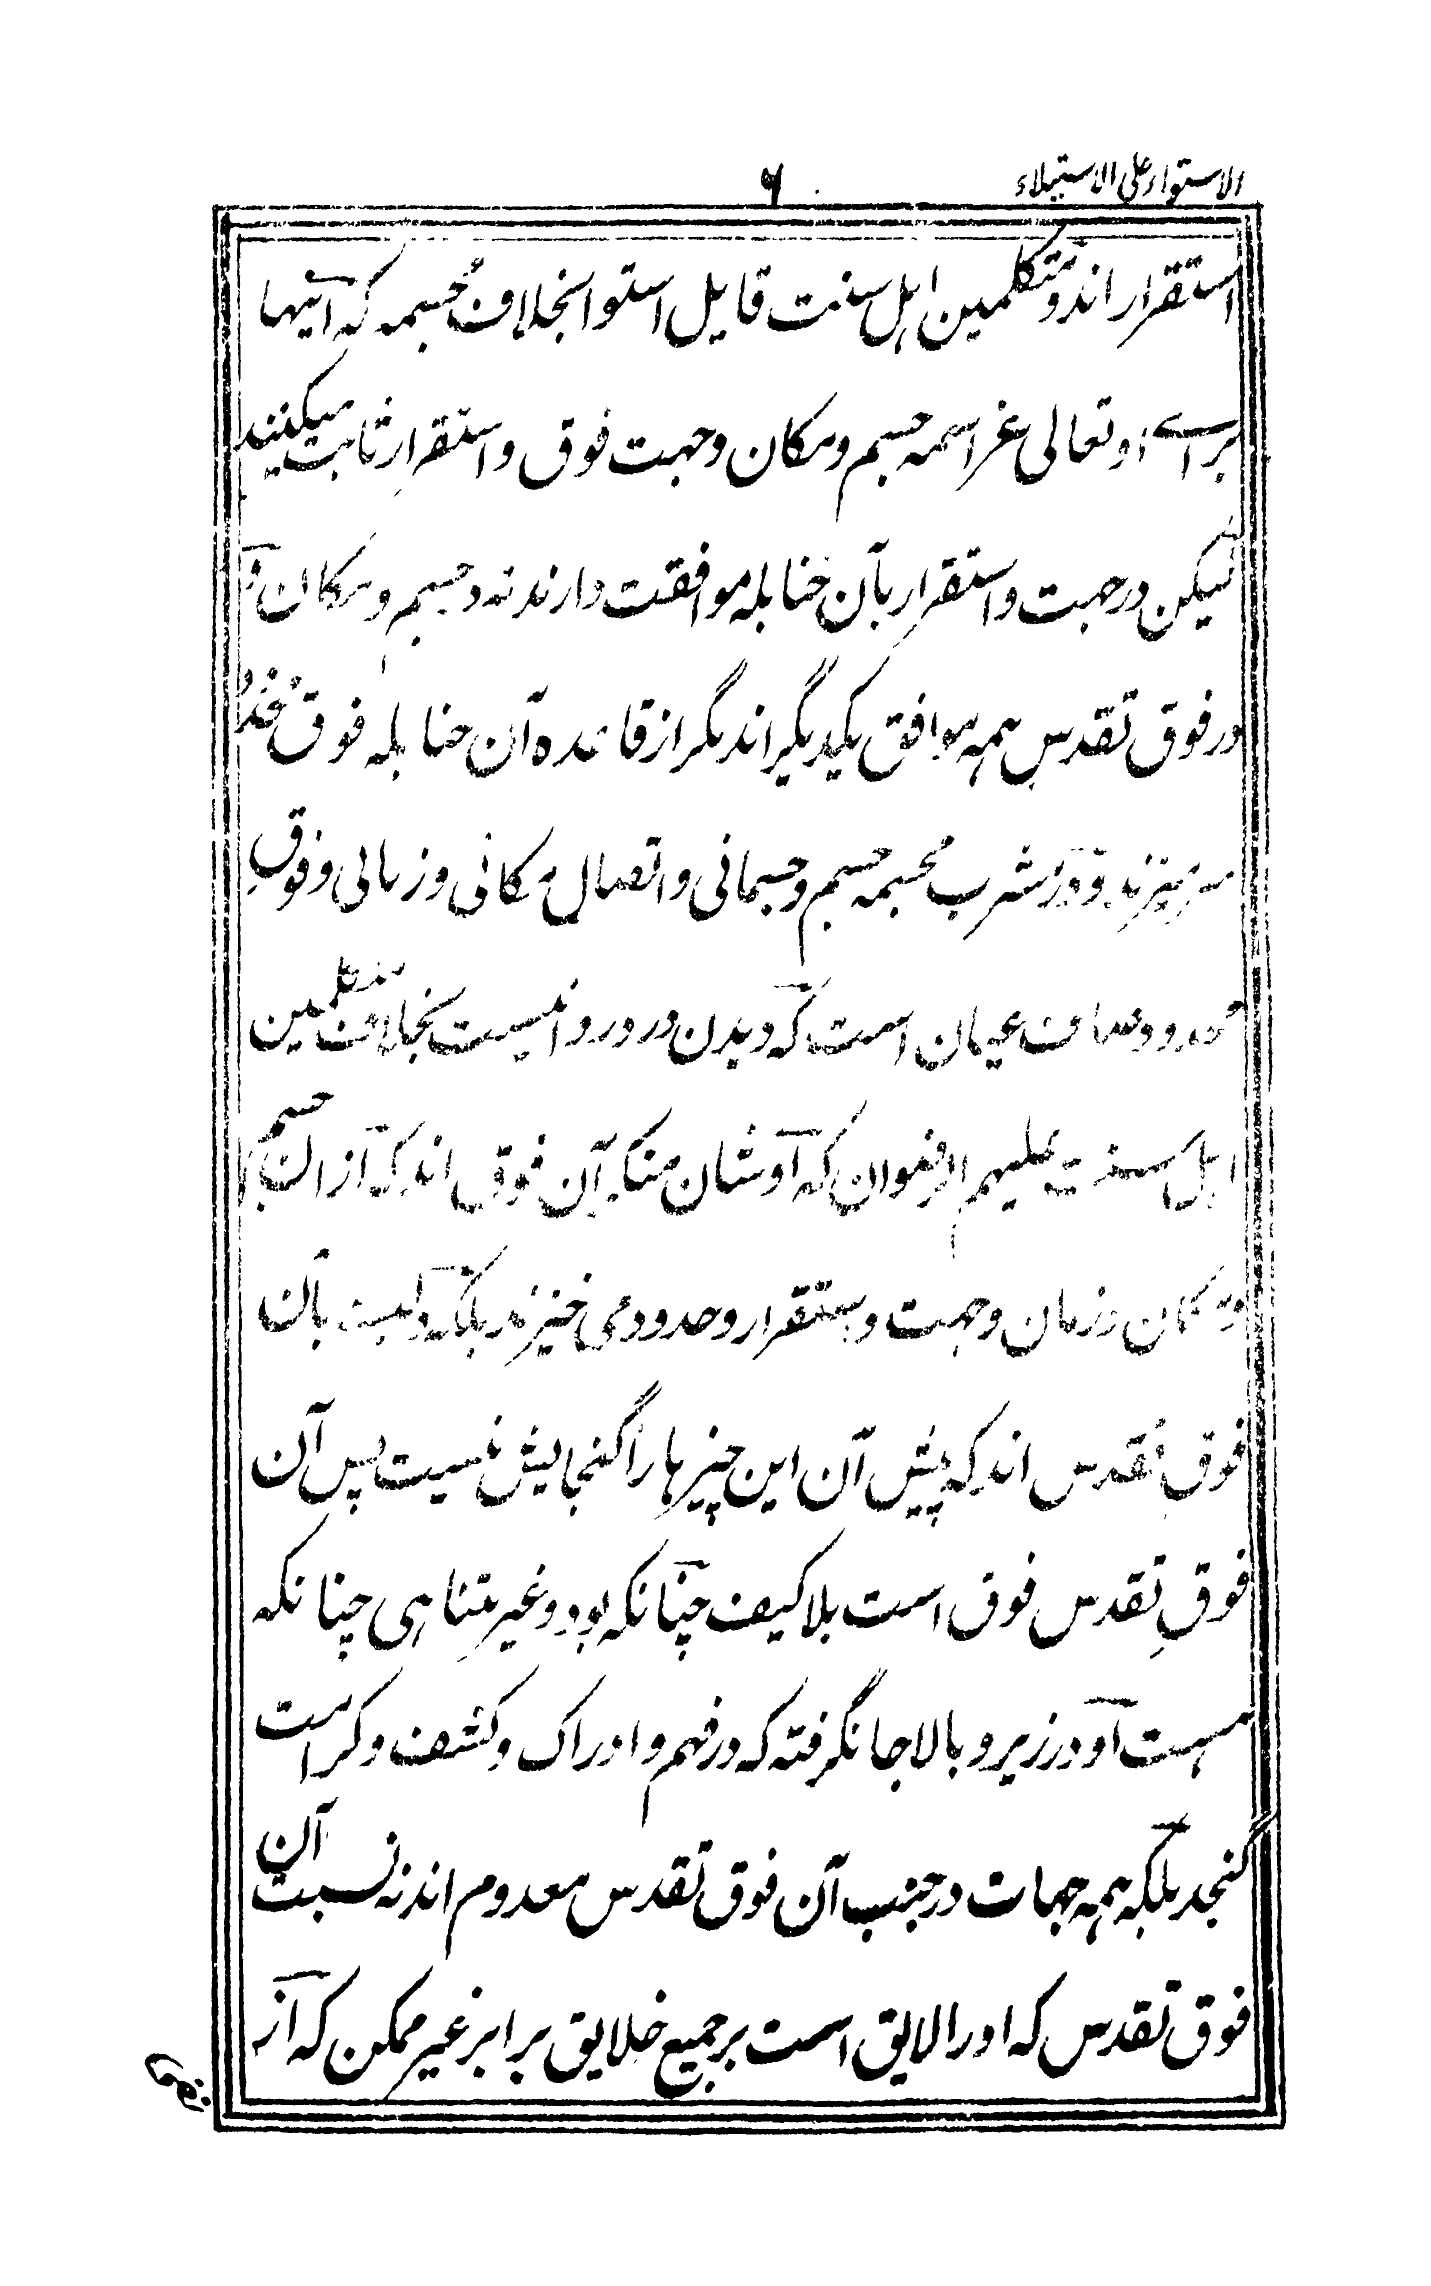 الاستواء علی الاستیلاء
۶
استقرار اند و متکلمین اہل سنت قایل استوا بخلاف مجسمہ کہ آنہا
براے او تعالی عز اسمہ جسم و مکان و جہت فوق و استقرار ثابت میکنند
لیکن در جہت و استقرار بآن حنابلہ موافقت دارند نہ در جسم و مکان
در فوق تقدس ہمہ موافق یکدیگر اند مگر از قاعدہ آن حنابلہ فوق
مشرب مجسمہ جسم و جسمانی و اتصال مکانی و زمانی و فوق
عیان است کہ دیدن در و روا نیست بخلاف متکلمین
اہل سنت علیہم الرضوان کہ اوشان منکر آن فوق اند کہ از ان جسم
و مکان و زمان و جہت و استقرار و حدود می خیزد بلکہ بآن
فوق تقدس اند کہ پیش آن این چیزہا را گنجایش نیست پس آن
فوق تقدس فوق است بلا کیف چنانکہ بود و غیر متناہی چنانکہ
ہست او در زیر و بالا جا نگرفتہ کہ در فہم و ادراک و کشف و کرامت
گنجد بلکہ ہمہ جہات در جنب آن فوق تقدس معدوم اند نہ نسبت آن
فوق تقدس کہ او را لایق است بر جمیع خلایق برابر غیر ممکن کہ از